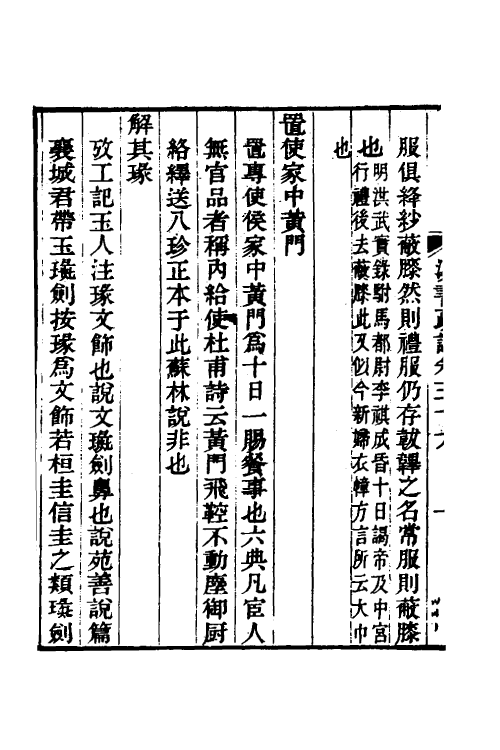 服俱絳紗蔽膝然則禮服仍存韍韠之名常服則蔽膝
也明洪武實錄駙馬都尉李祺成昏十日謁帝及中宮
行禮後去蔽膝此又似今新婦衣幃方言所云大巾
也
置使家中黃門
置專使侯家中黃門爲十日一賜餐事也六典凡宦人
無官品者稱內給使杜甫詩云黃門飛鞚不動塵御厨
絡繹送八珍正本于此蘇林說非也
解其瑑
攷工記玉人注瑑文飾也說文璏劍鼻也說苑善說篇
襄城君帶玉璏劍按瑑爲文飾若桓圭信圭之類璏劍